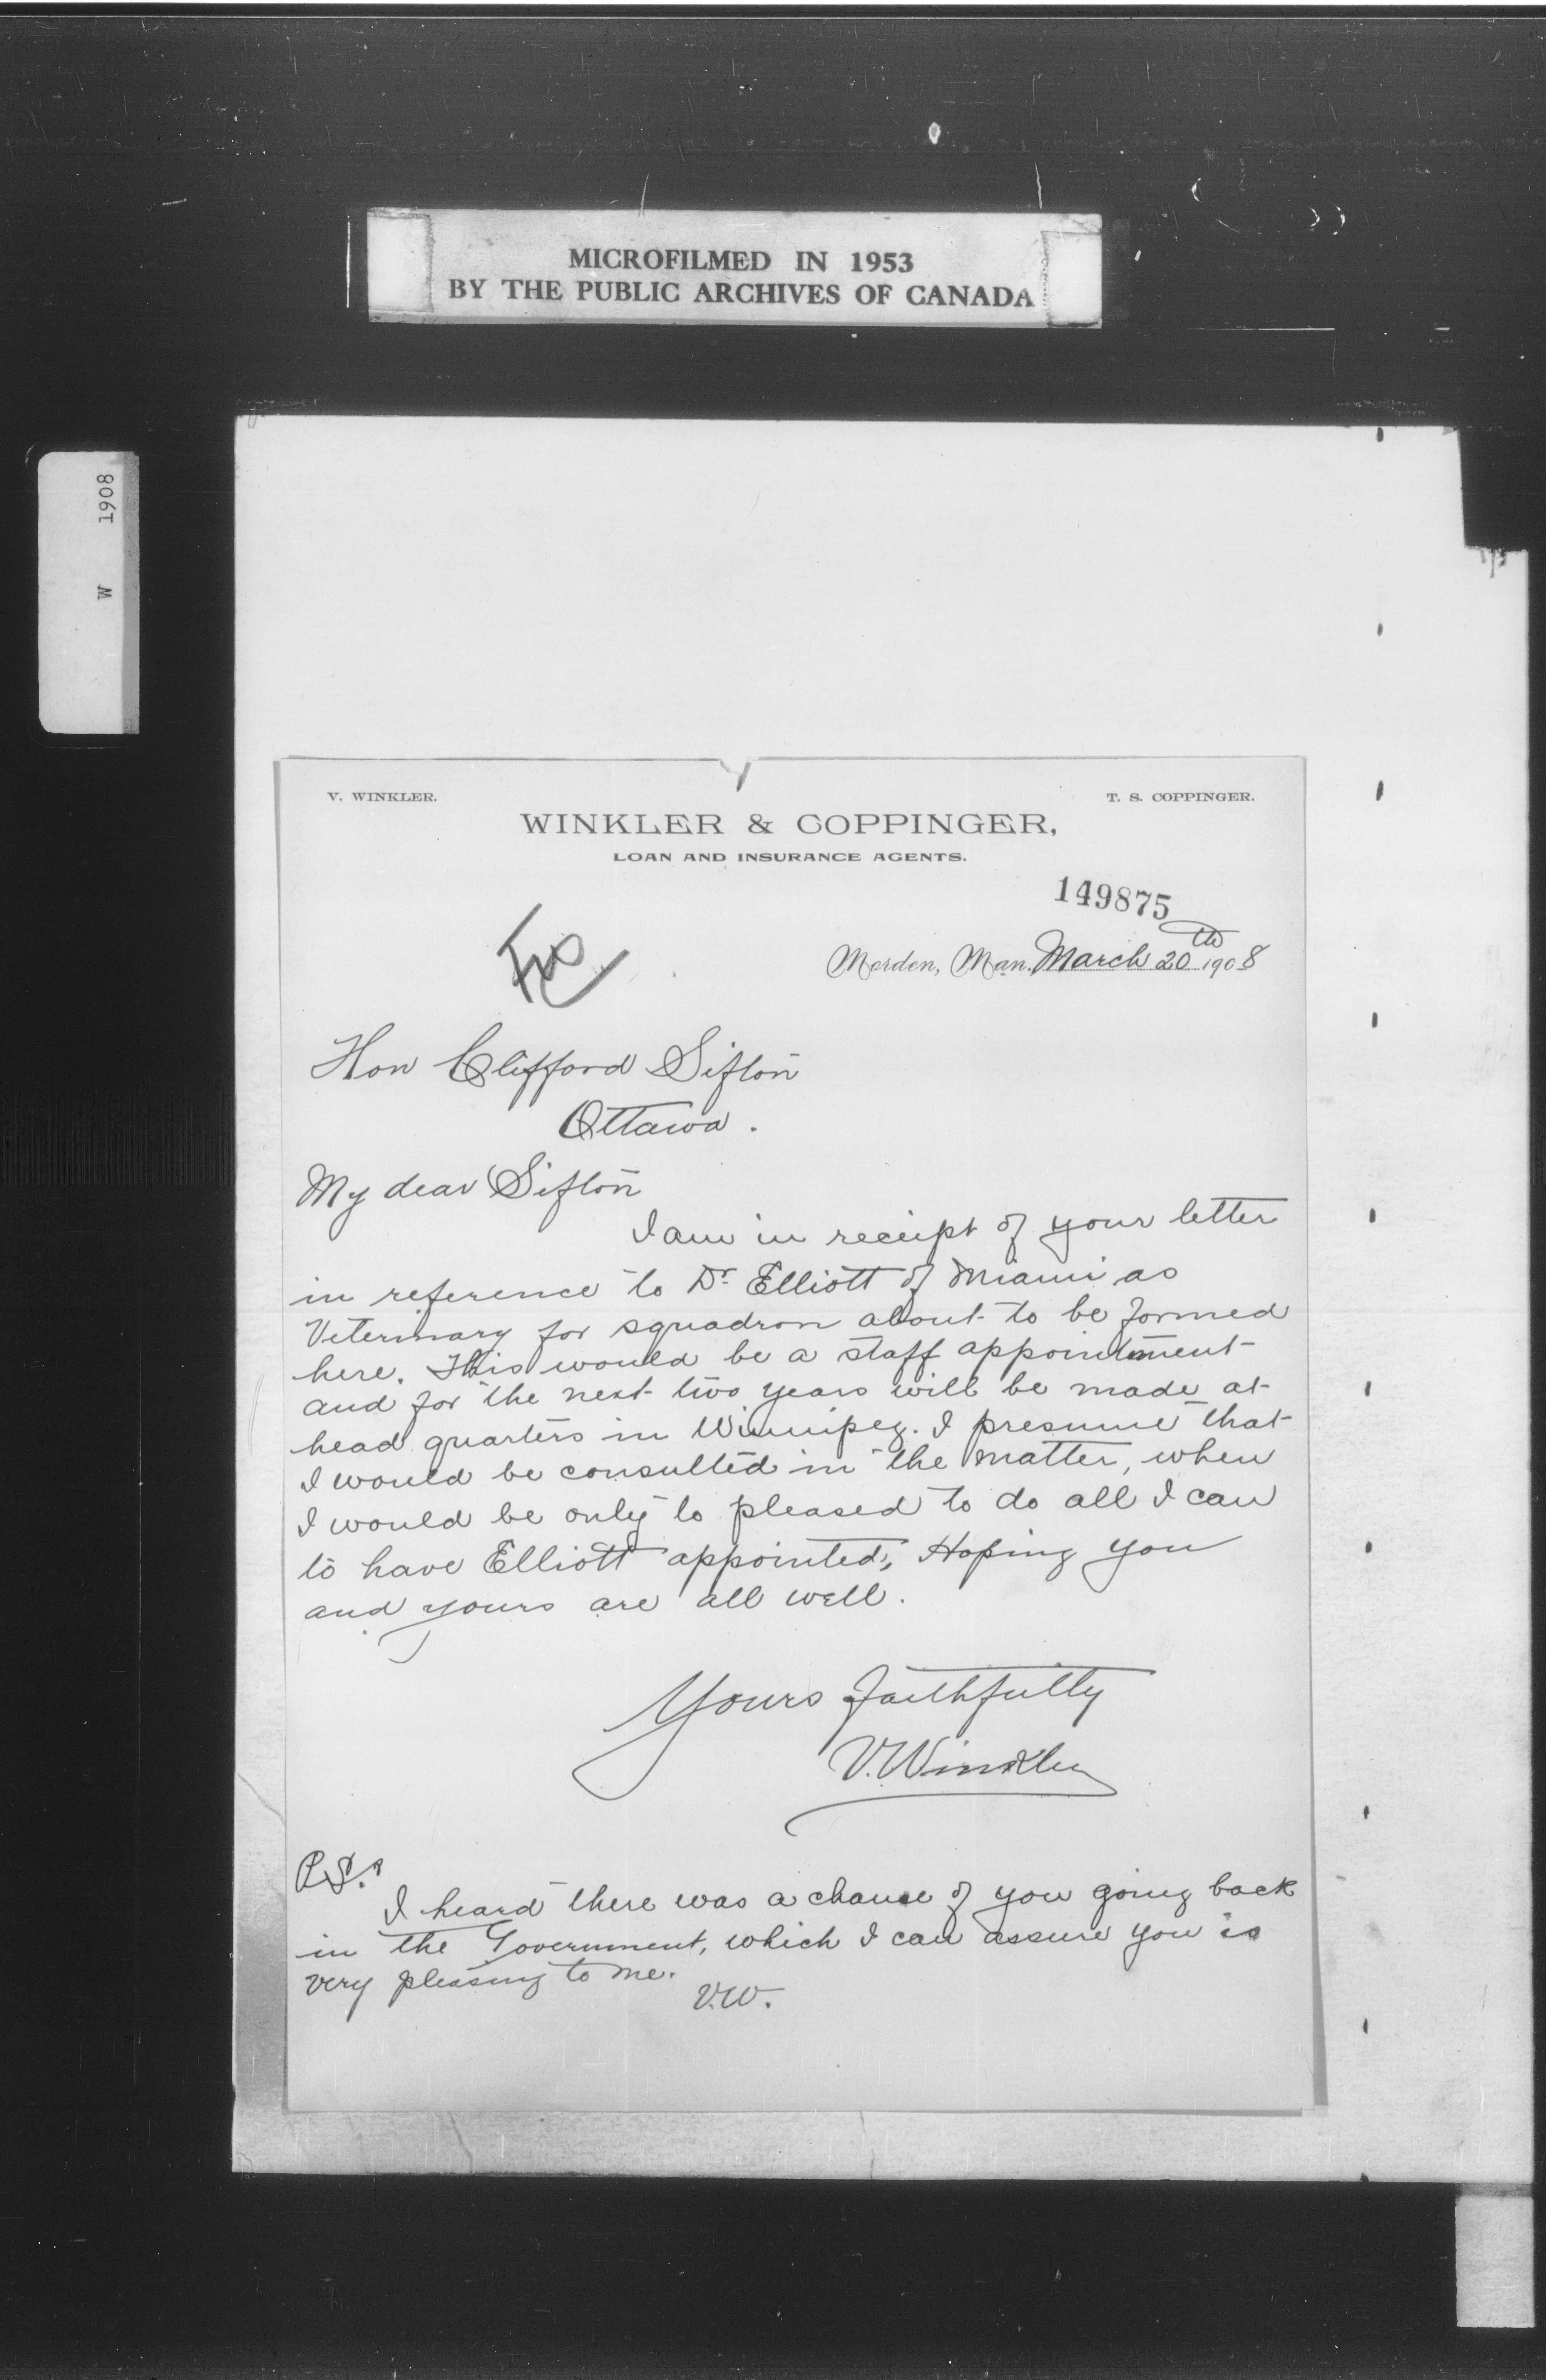 MICROFILMED IN 1953
BY THE PUBLIC ARCHIVES OF CANADA
W 1908
V. WINKLER.
T. S. COPPINGER.
WINKLER & COPPINGER,
LOAN AND INSURANCE AGENTS.
149875
Morden, Man. March 20th 1908
Hon Clifford Sifton
Ottawa.
My dear Sifton
I am in receipt of your letter
in reference to Dr. Elliott of Miami as
Veterinary for squadron about to be formed
here. This would be a staff appointment
and for the next two years will be made at
head quarters in Winnipeg. I presume that
I would be consulted in the matter, when
I would be only to pleased to do all I can
to have Elliott appointed, Hoping you
and yours are all well.
Yours faithfully
V. Winkler
P.S.
I heard there was a chance of you going back
in the Government, which I can assure you is
very pleasing to me.
V.W.